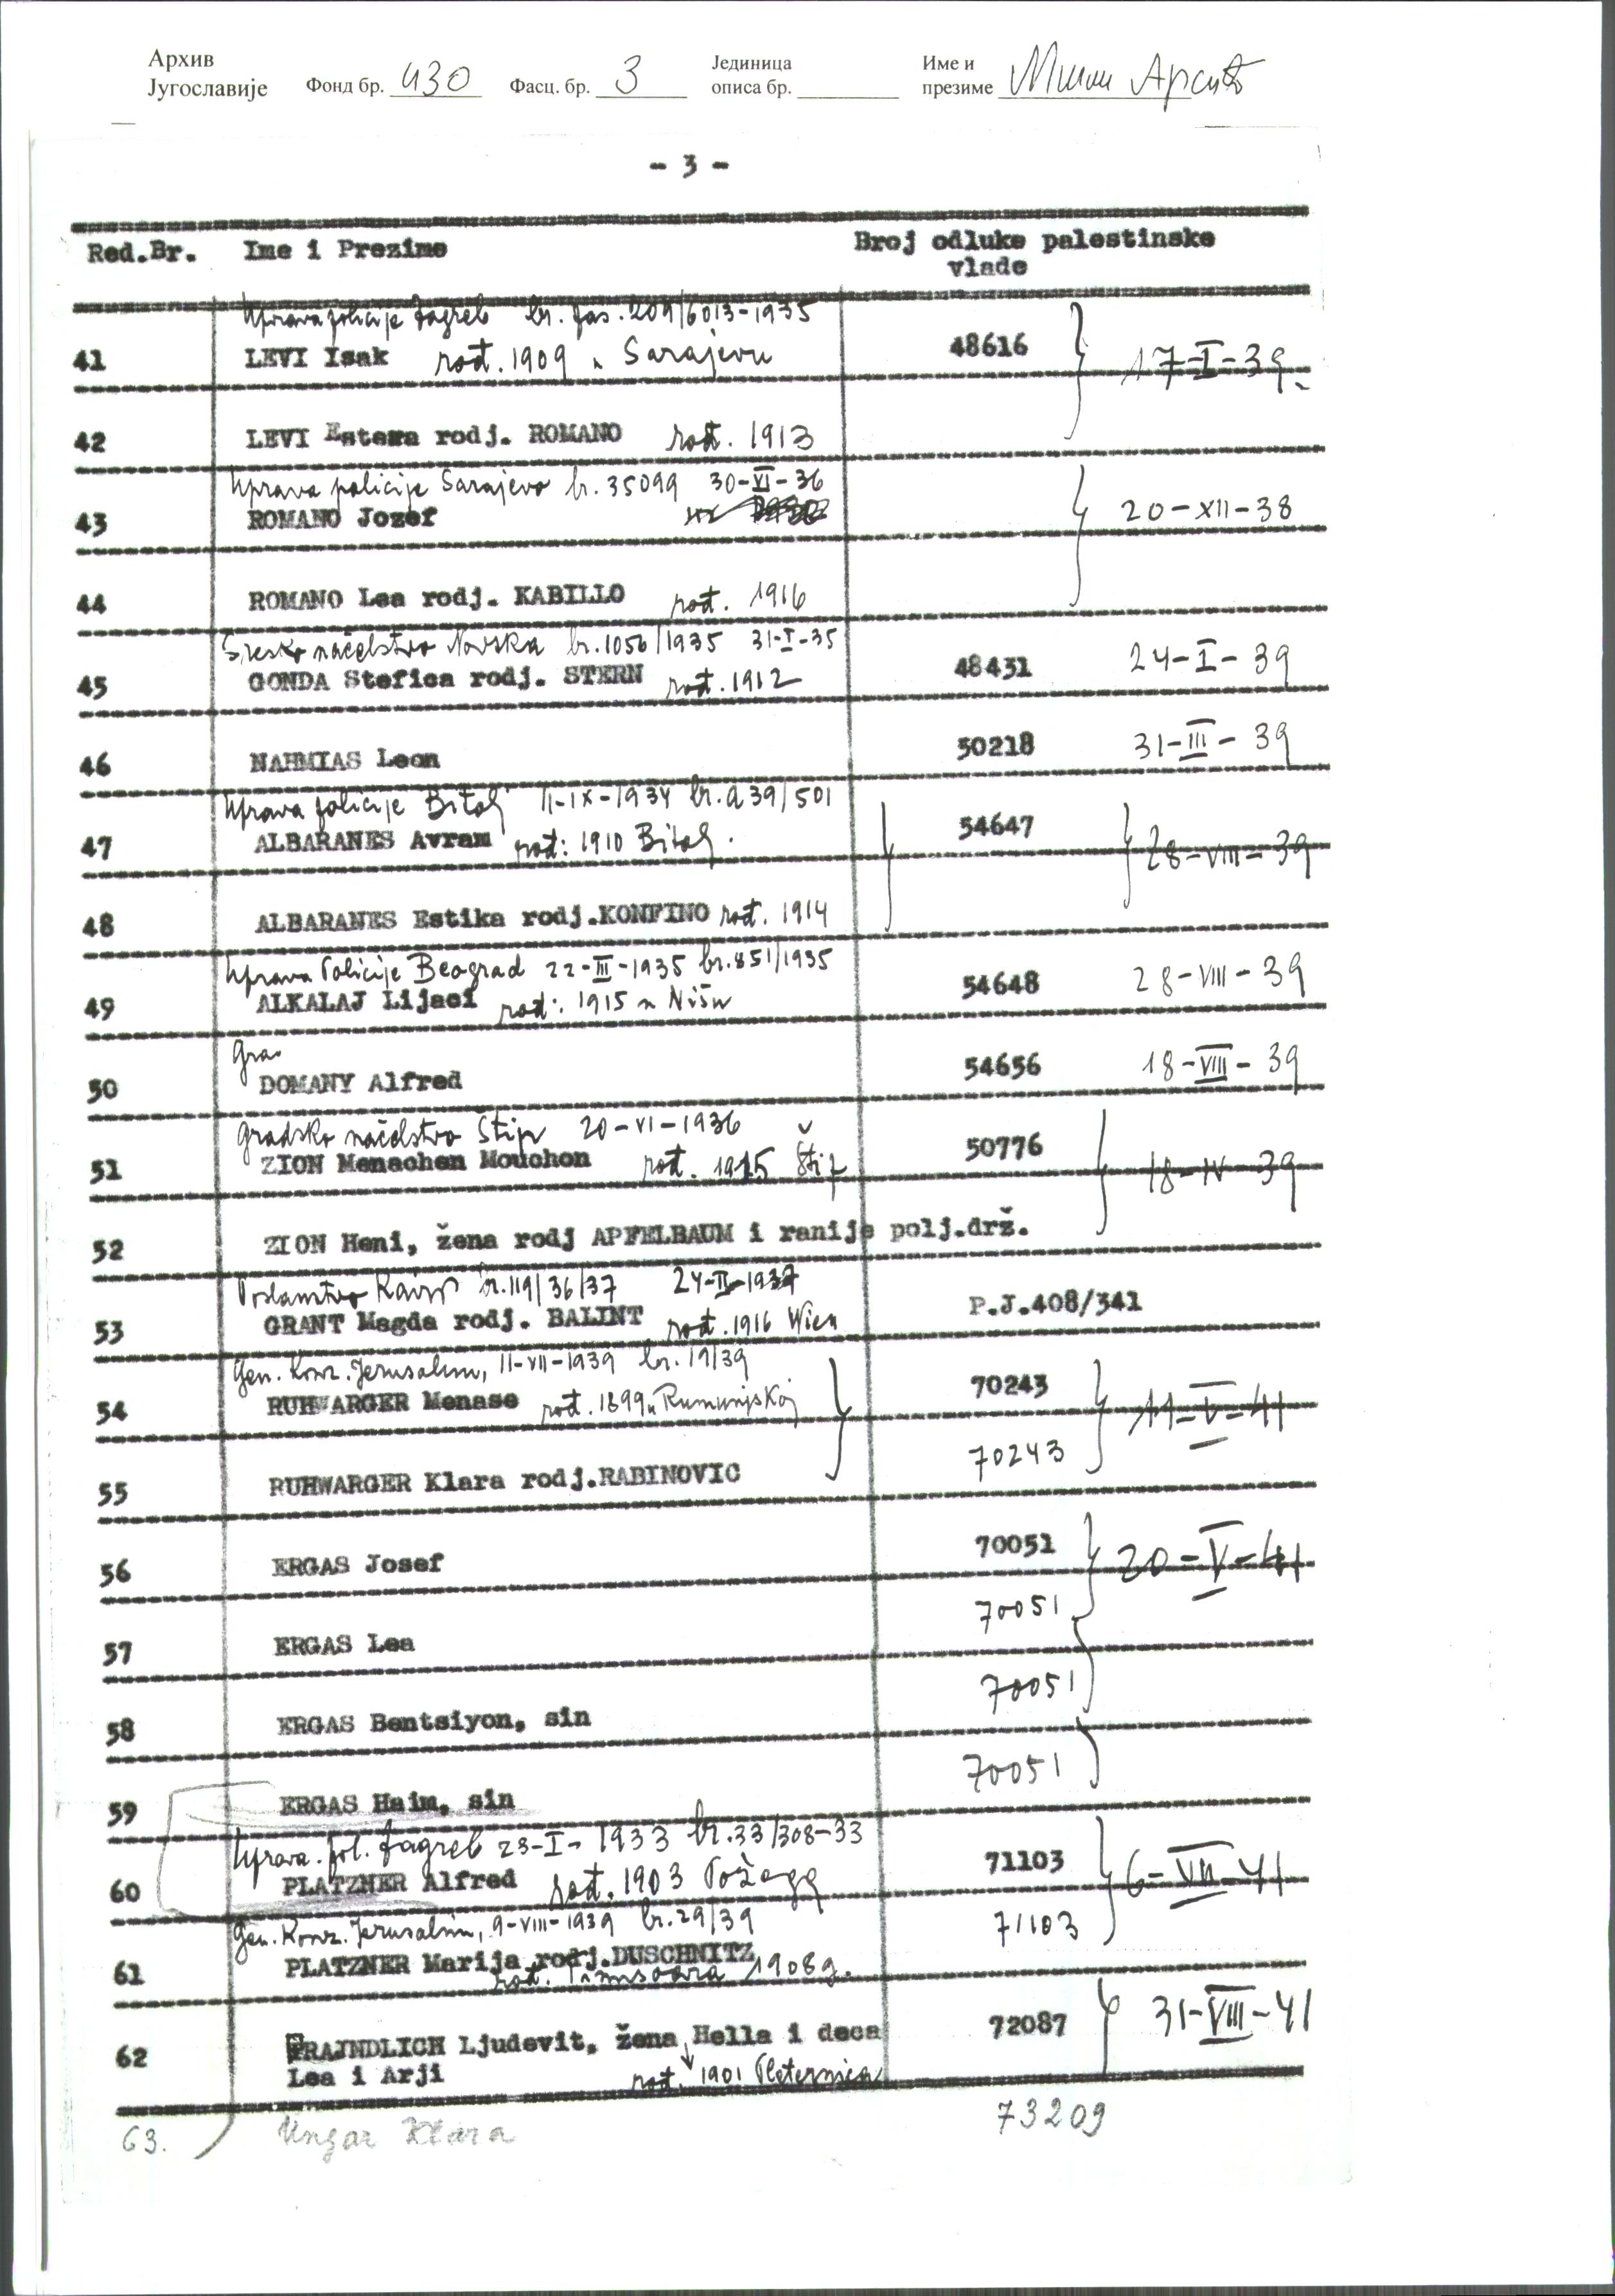 Архив
Југославије Фонд бр. 430 Фасц. бр. 3 Јединица описа бр. Име и презиме Милан Арсић
- 3 -
Red.Br. Ime i Prezime Broj odluke palestinske
vlade
Uprava policije Zagreb br. pas. 209/6013-1935
41 LEVI Isak rođ. 1909 u Sarajevu 48616 17-I-39
42 LEVI Estera rodj. ROMANO rođ. 1913
Uprava policije Sarajevo br. 35099 30-VI-36
43 ROMANO Jozef 20-XII-38
44 ROMANO Lea rodj. KABILLO rođ. 1916
Sresko načelstvo Novska br. 1056/1935 31-I-35
45 GONDA Stefica rodj. STERN rođ. 1912 48431 24-I-39
46 NAHMIAS Leon 50218 31-III-39
Uprava policije Bitolj 11-IX-1934 br. 39/501
47 ALBARANES Avram rođ: 1910 Bitolj. 54647 28-VIII-39
48 ALBARANES Estika rodj.KONFINO rođ. 1914
Uprava Policije Beograd 22-III-1935 br. 851/1935
49 ALKALAJ Lijaci rođ: 1915 u Nišu 54648 28-VIII-39
Gra
50 DOMANY Alfred 54656 18-VIII-39
Gradsko načelstvo Štip 20-VI-1936
51 ZION Menachen Mouchon rođ. 1915 Štip 50776 18-IV-39
52 ZION Heni, žena rodj APFELBAUM i ranije polj.drž.
Poslanstvo Kairo br. 119/36/37 24-II-1937
53 GRANT Magda rodj. BALINT rođ. 1916 Wien P.J.408/341
Gen. Konz. Jerusalim, 11-VII-1939 br. 19/39
54 RUHWARGER Menase rođ. 1899 u Rumunjskoj 70243 11-V-41
55 RUHWARGER Klara rodj.RABINOVIC 70243
56 ERGAS Josef 70051 20-V-41
57 ERGAS Lea 70051
58 ERGAS Bentsiyon, sin 70051
59 ERGAS Haim, sin 70051
Uprava. pol. Zagreb 23-I-1933 br. 33/308-33
60 PLATZNER Alfred rođ. 1903 Požega 71103 6-VII-41
Gen. Konz. Jerusalim, 9-VIII-1939 br. 29/39
61 PLATZNER Marija rodj.DUSCHNITZ 71103
rođ. Timisoara 1908g.
62 FRAJNDLICH Ljudevit, žena Hella i deca 72087 31-VIII-41
Lea i Arji rođ. 1901 Pleternica
63. Ungar Klara 73209